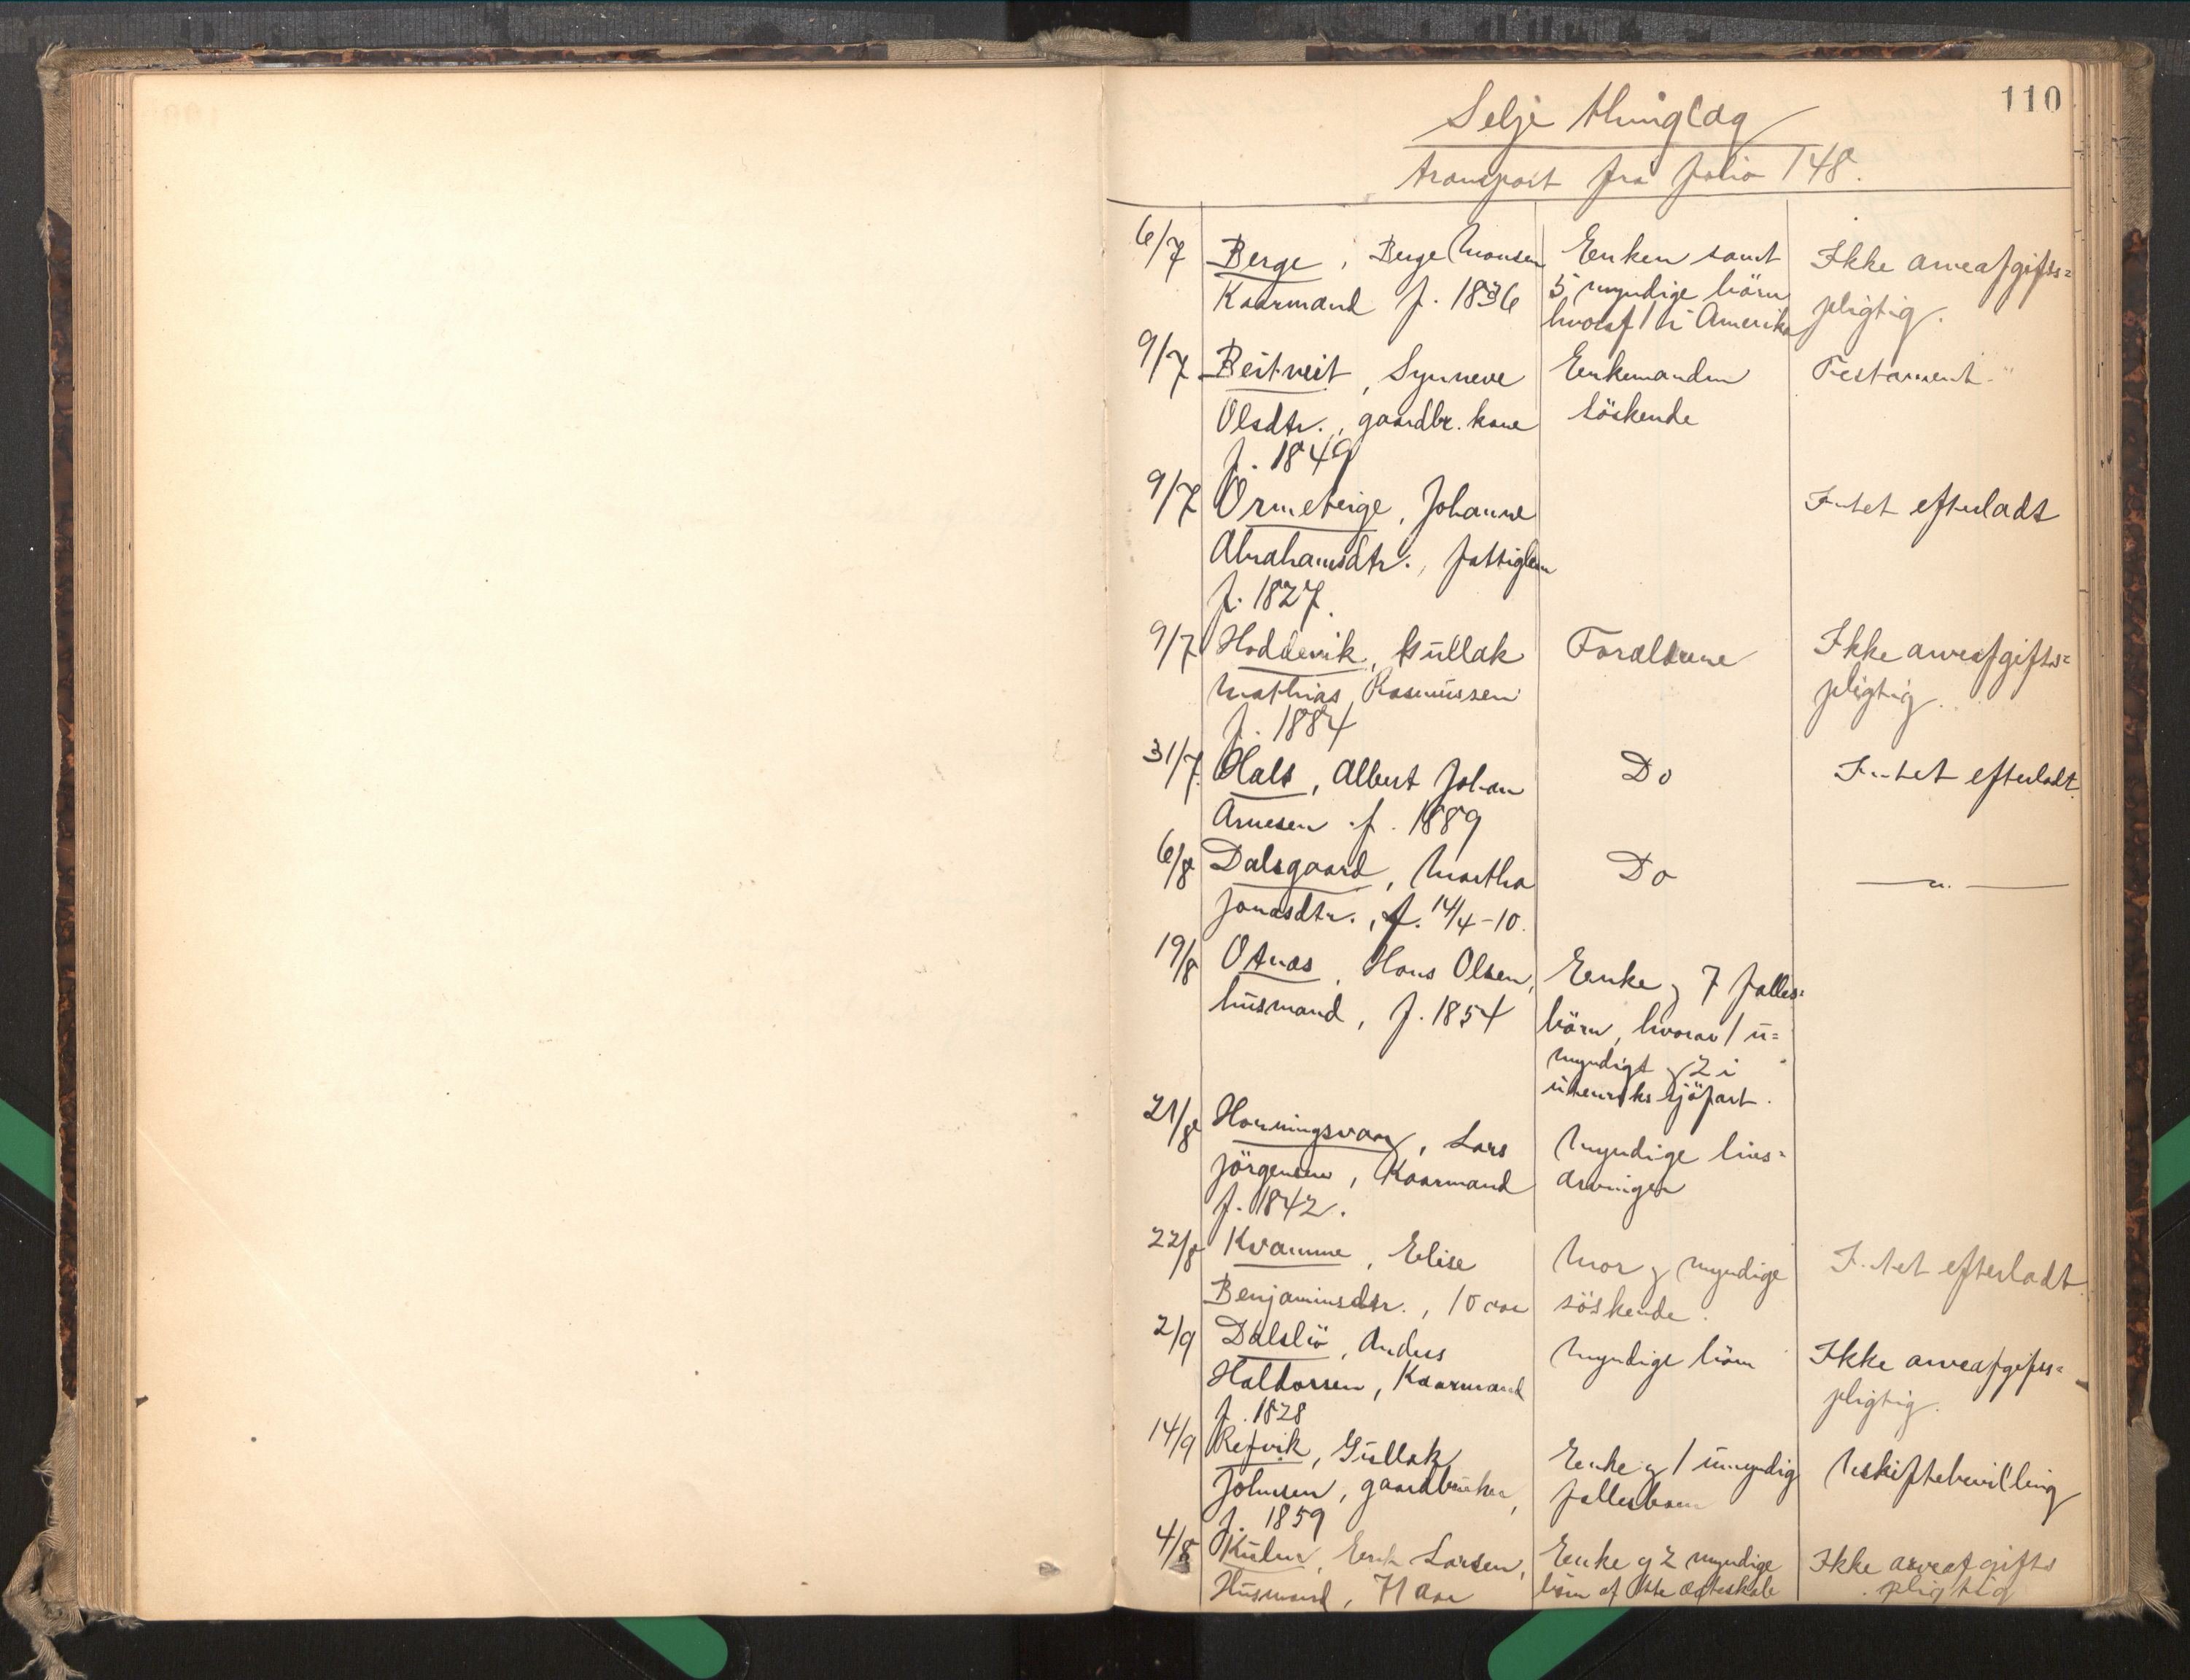 110
Selje thinglag
transport fra folio 148.
6/7 Berge, Berge Monsen Enken samt Ikke arveafgifts=
Kaarmand f. 1836 5 myndige börn pligtig.
hvoraf 1 i Amerika
9/7 Beitveit, Synneve Enkemanden Testament
Olsdtr., gaardbr. kone söskende
f. 1849
9/7 Ormeteige, Johanne Intet efterladt
Abrahamsdtr., fattiglem
f. 1827.
9/7 Hoddevik, Gullak Forældrene Ikke arveafgifts=
Mathias Rasmussen pligtig.
f. 1884
31/7 Hals, Albert Johan Do Intet efterladt.
Arnesen f. 1889
6/8 Dalsgaard, Martha Do — " —
Jonasdtr., f. 14/4-10.
19/8 Otnæs, Hans Olsen, Enke og 7 fælles=
husmand, f. 1854 börn, hvorav 1 u=
myndigt og 2 i
utenriks sjöfart.
21/8 Honningsvaag, Lars Myndige livs=
Jörgensen, Kaarmand arvinger
f. 1842.
22/8 Kvamme, Elise Mor og myndige Intet efterladt.
Benjaminsdtr., 10 aar söskende.
2/9 Dalsbö, Anders Myndige börn Ikke arveafgifts=
Haldorsen, Kaarmand pligtig.
f. 1828
14/9 Refvik, Gullak Enke og 1 umyndig Uskiftebevilling
Johnsen, gaardbruker, fællesbarn
f. 1859
4/8 Larsen, Enke og 2 myndige Ikke arveafgifts
Husmand, 71 aar börn af ægteskab pligtig